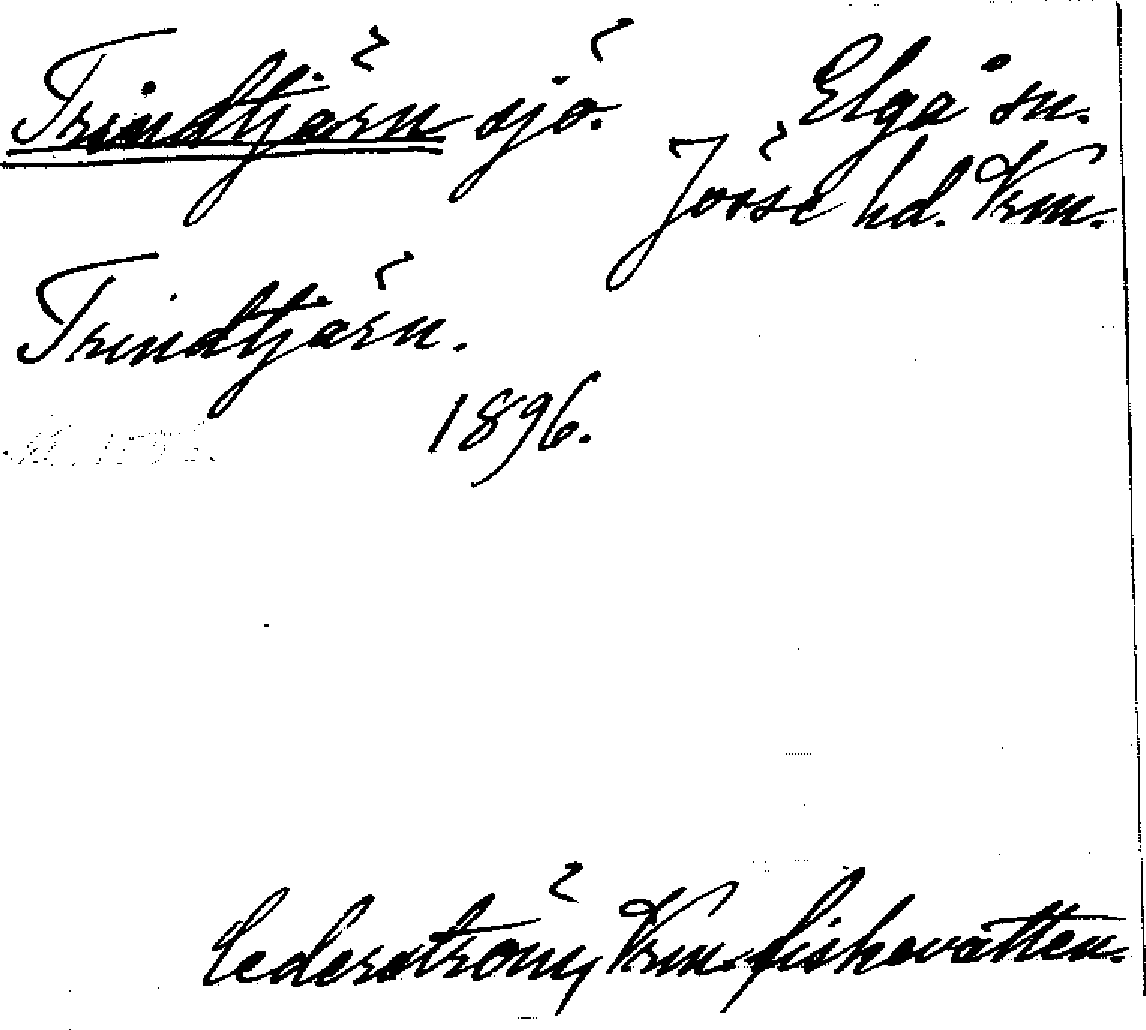 Trindtjärn sjö. Elga sn.
Jösse hd. Vrm.
Trindtjärn.
1896.
Cederström, Vrm. fiskevatten.